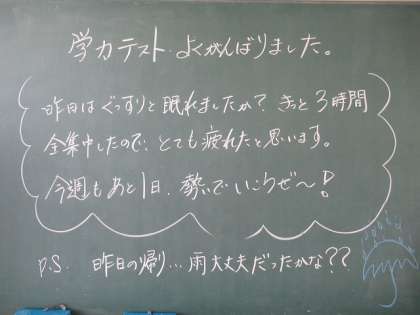 学力テスト、よくがんばりました。
昨日はぐっすりと眠れましたか？きっと３時間
全集中したので、とても疲れたと思います。
今週もあと１日、勢いでいこうぜ〜！
P.S. 昨日の帰り…雨大丈夫だったかな？？